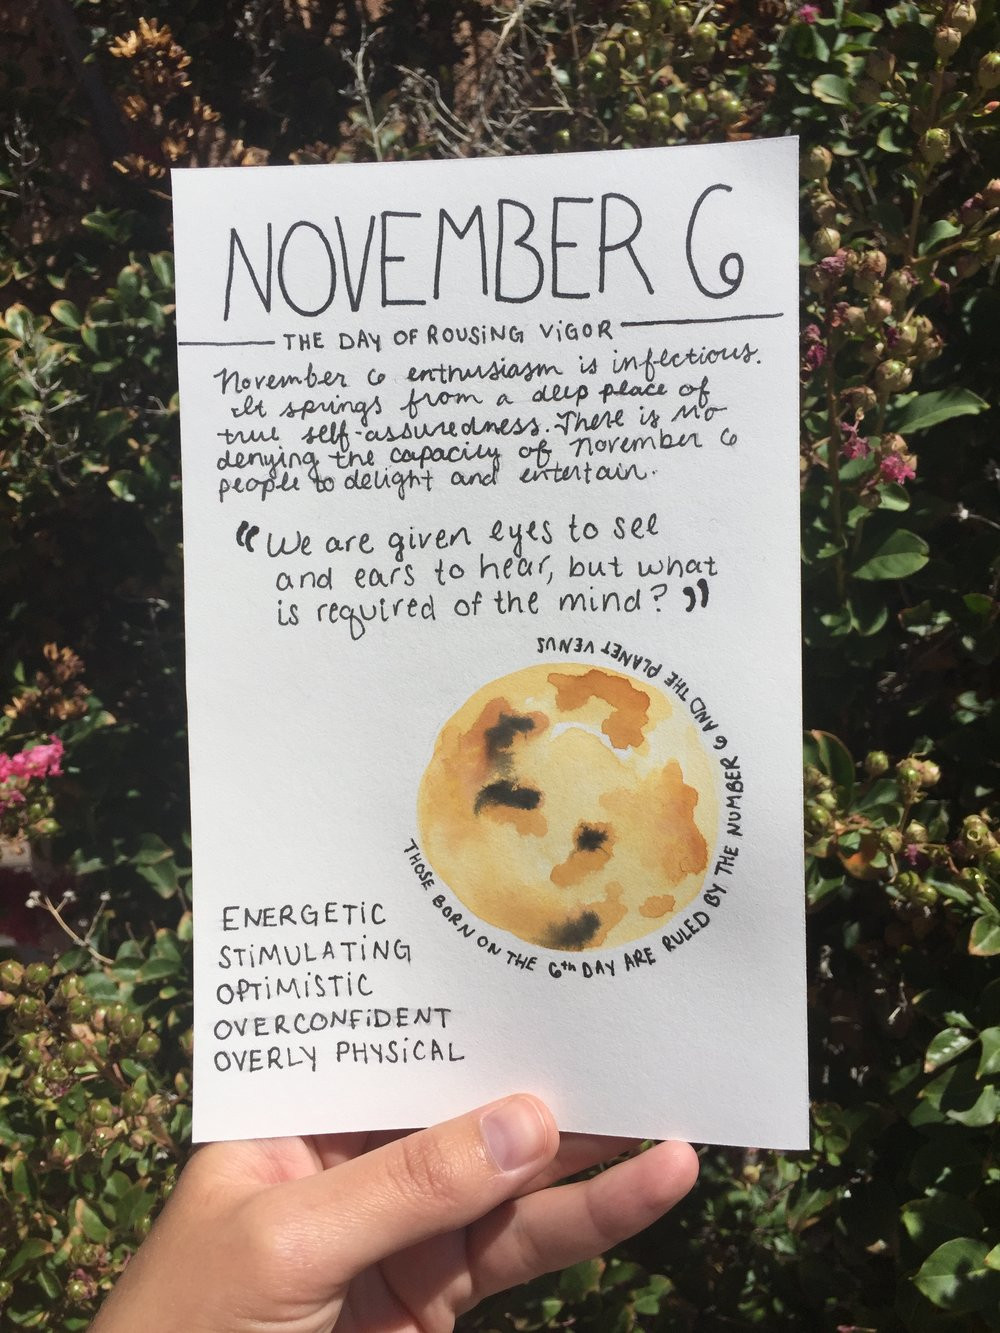 NOVEMBER 6
THE DAY OF ROUSING ViGOR
November 6 enthusiasm is infectious.
It springs from a deep place of
true self-assuredness. There is no
denying the capacity of November 6
people to delight and entertain.
“We are given eyes to see
and ears to hear, but what
is required of the mind?”
THOSE BORN ON THE 6th DAY ARE RULED BY THE NUMBER 6 AND THE PLANET VENUS
ENERGETiC
STiMULATiNG
OPTiMiSTiC
OVERCONFiDENT
OVERLY PHYSiCAL